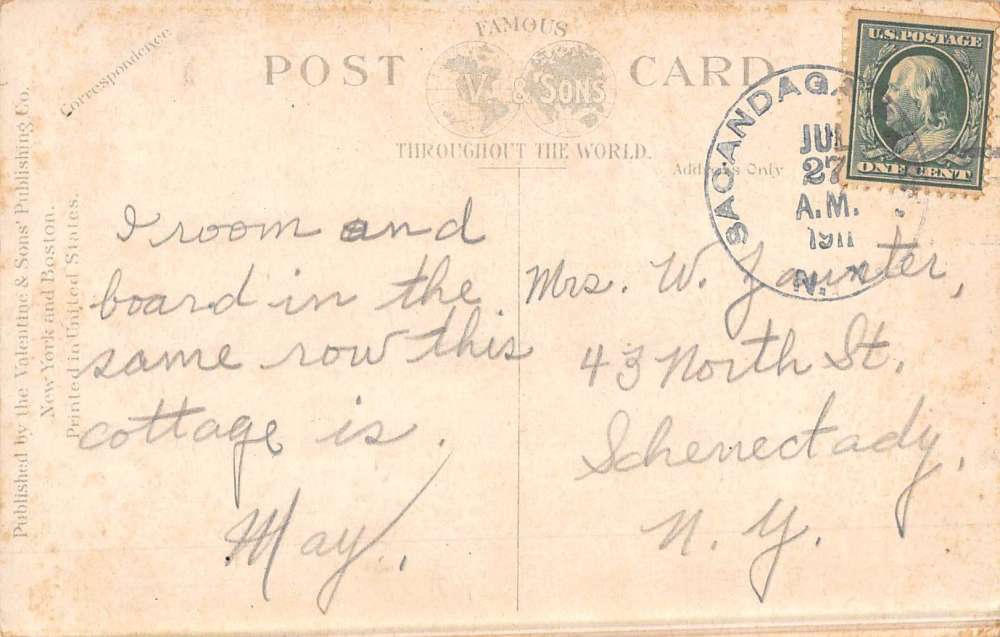 Published by the Valentine & Sons' Publishing Co.
New York and Boston.
Printed in United States.
Correspondence.
FAMOUS
POST CARD
V. & SONS
THROUGHOUT THE WORLD.
Address Only
SACANDAGA
JUL
27
A.M.
1911
N.
U.S. POSTAGE
ONE CENT
I room and
board in the
same row this
cottage is.
May.
Mrs. W.
43 North St.
Schenectady,
N. Y.